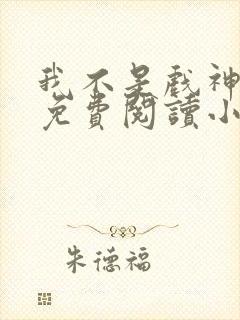 我不是戏神
免費閱讀小
朱德福